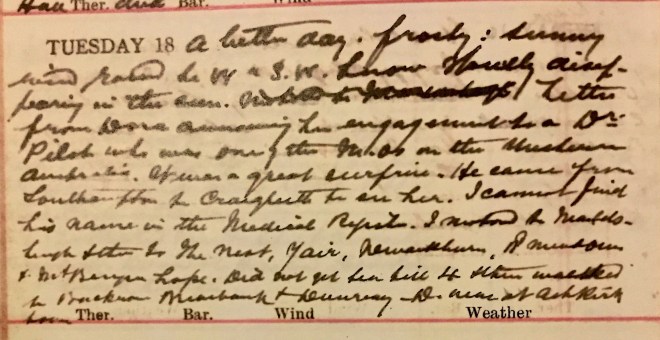 Ther. and Bar. Wind
TUESDAY 18 A better day. frosty: sunny
wind round to W & S.W. Snow slowly disap-
pearing in the sun. Motored to Letter
from Dora announcing her engagement to a Dr
Pilot who was one of the M.Os on the
Australia. It was a great surprise. He came from
Southampton to Craigbeth to see her. I cannot find
his name in the Medical Register. I motored to
then to The Nest, Yair, Newarkburn,
& Mt Benger Hope. Did not get tea till 4 & then walked
to & D. was at Ashkirk
Ther. Bar. Wind Weather